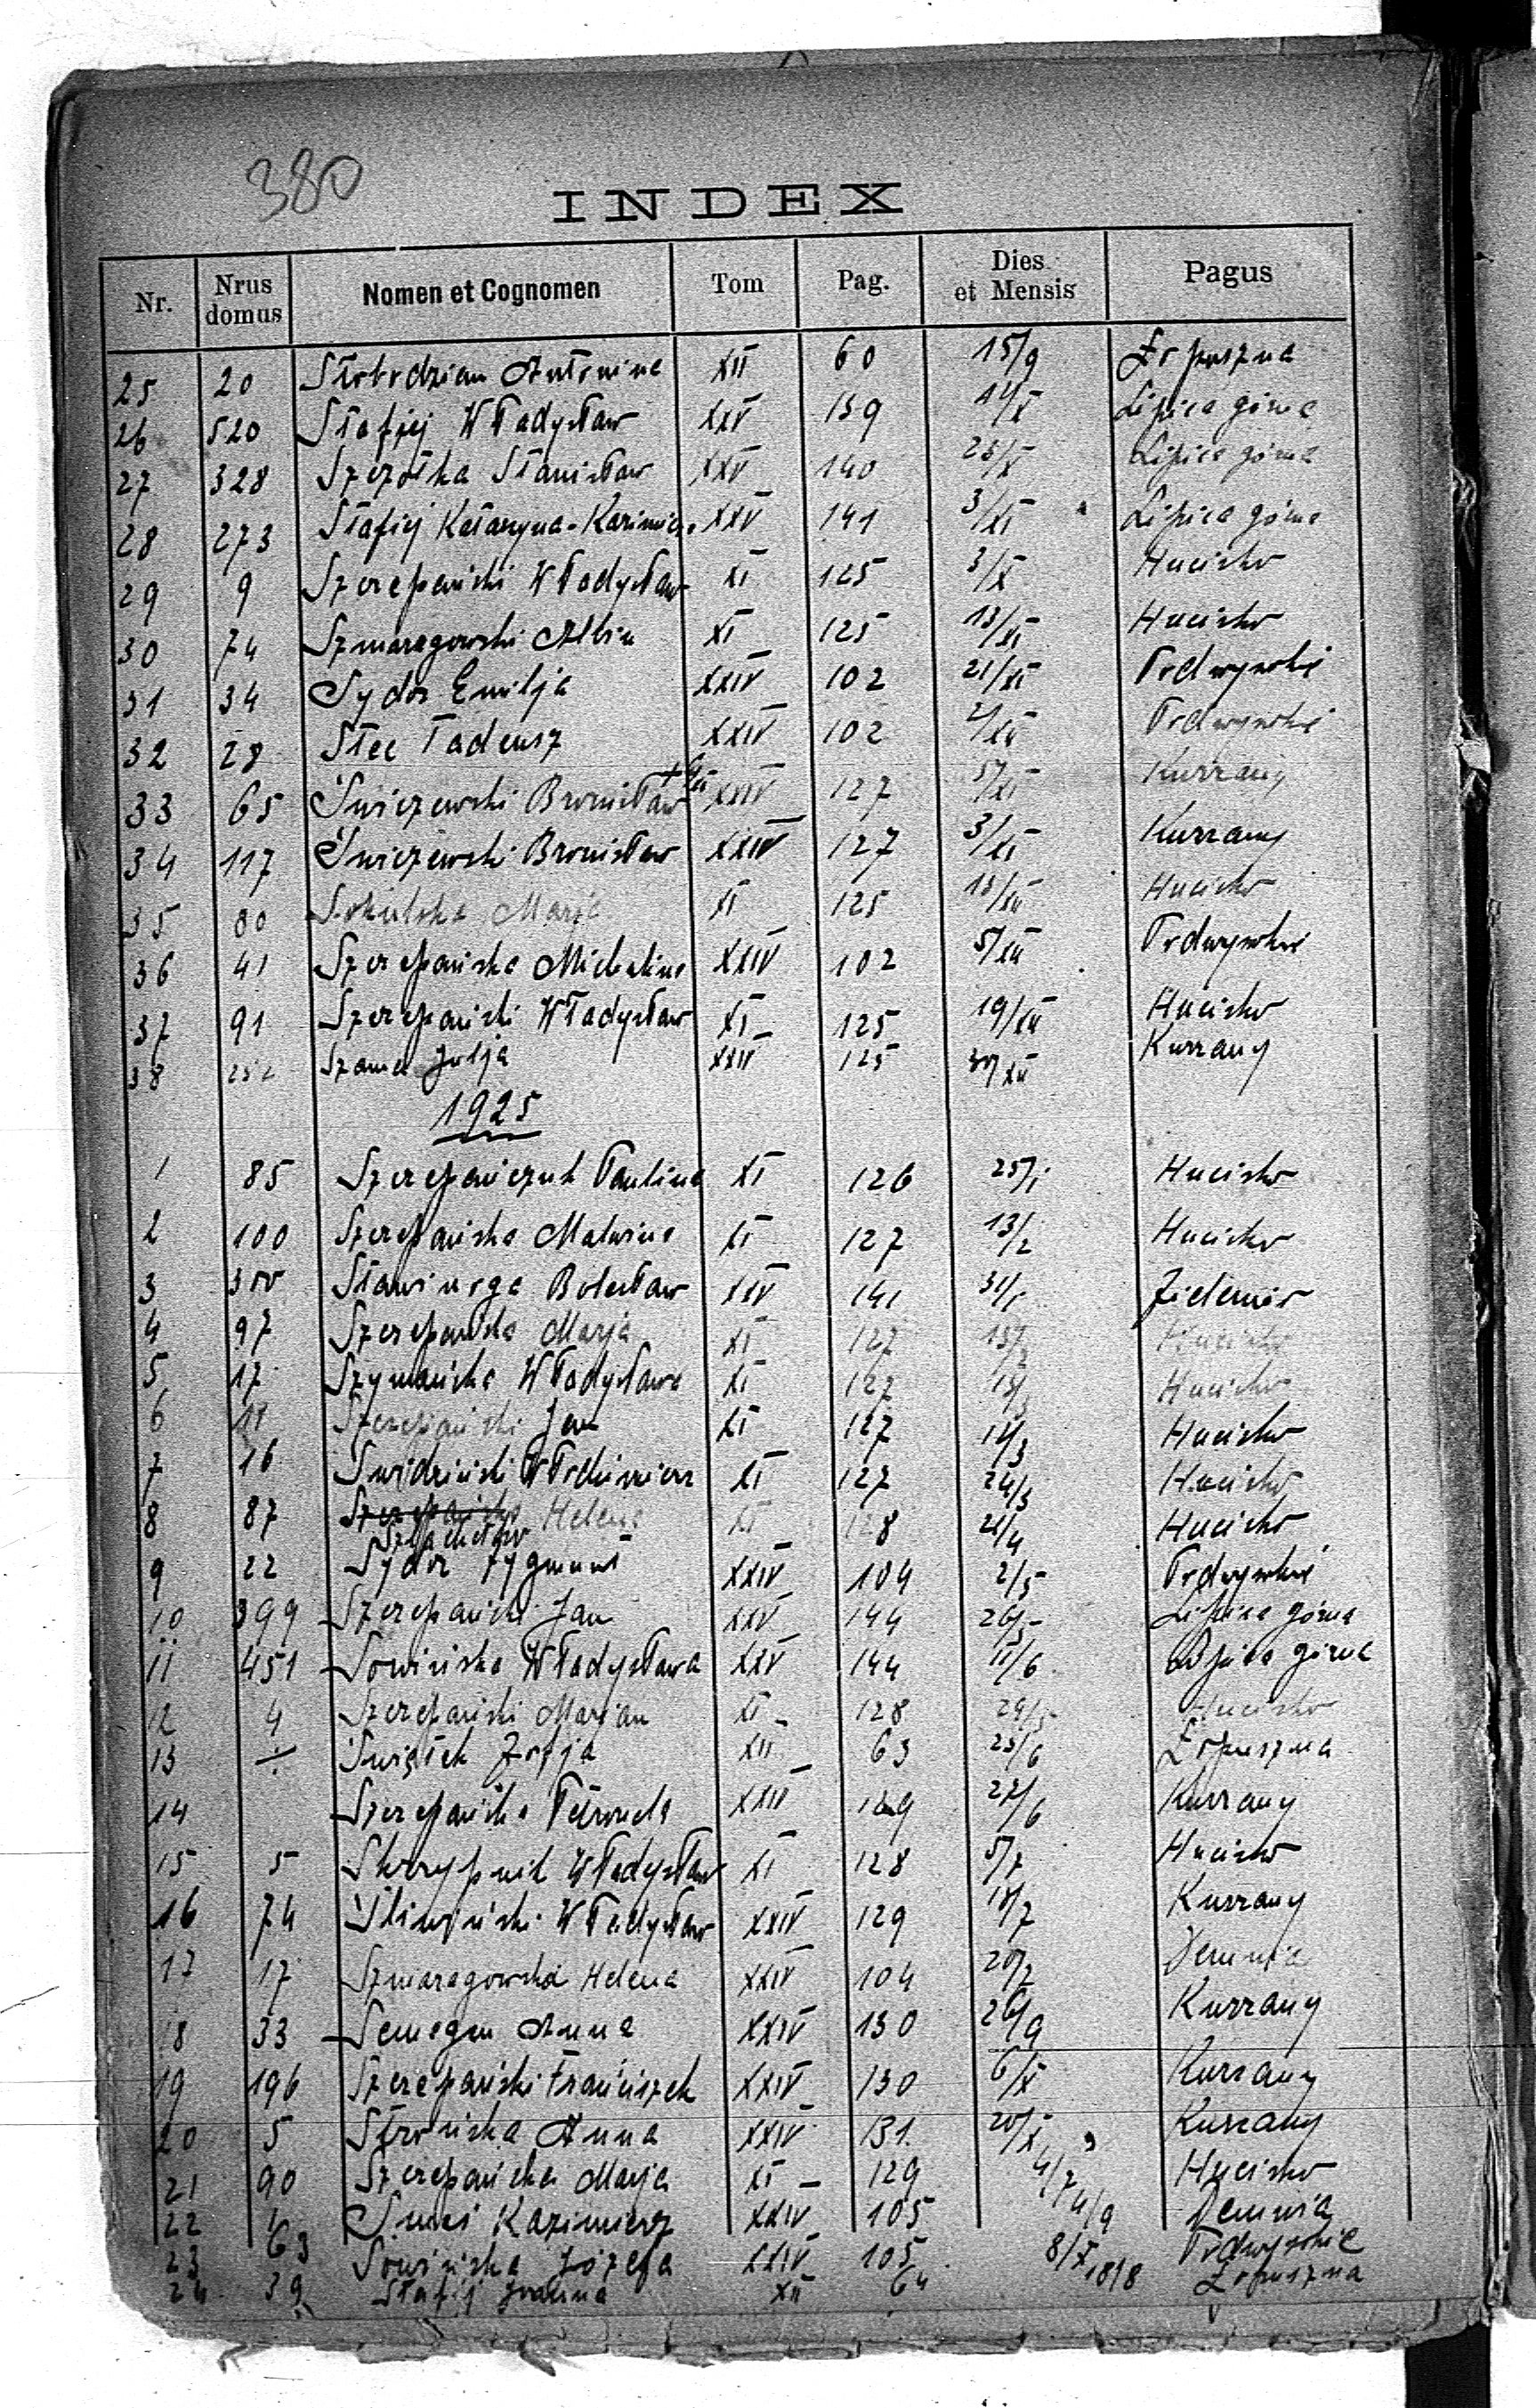 380
INDEX
Nr. Nrus domus Nomen et Cognomen Tom Pag. Dies et Mensis Pagus
25 20 Słobodzian Antonina XII 60 15/9 Łopuszna
26 520 Stafiej Władysław XXV 139 14/X Lipica górna
27 328 Szczotka Stanisław XXV 140 23/X Lipica górna
28 273 Stafiej Katarzyna-Kazimiera XXV 141 3/XI Lipica górna
29 9 Szczepański Władysław XI 125 3/X Hucisko
30 74 Szmaragowski Albin XI 125 13/XI Hucisko
31 34 Sydor Emilja XXIV 102 21/XI Podwysokie
32 28 Stec Tadeusz XXIV 102 2/XII Podwysokie
33 65 Świczewski Bronisław + XXIV 127 5/XI Kurzany
34 117 Świczewski Bronisław XXIV 127 3/XI Kurzany
35 80 Sokulska Marja XI 125 13/XII Hucisko
36 41 Szczepańska Michalina XXIV 102 5/XII Podwysokie
37 91 Szczepański Władysław XI 125 19/XII Hucisko
38 252 Szama Julja XXIV 125 30/XII Kurzany
1925
1 85 Szczepańczuk Paulina XI 126 25/1 Hucisko
2 100 Szczepańska Malwina XI 127 13/2 Hucisko
3 300 Stawinoga Bolesław XXV 141 31/1 Zielenów
4 97 Szczepańska Marja XI 127 Hucisko
5 17 Szymańska Władysława XI 127 Hucisko
6 11 Szczepański Jan XI 127 Hucisko
7 16 Świdziński Włodzimierz XI 127 24/3 Hucisko
8 87 Szczepańska Helena XI 128 21/4 Hucisko
Szlachetko
9 22 Sydor Zygmunt XXIV 104 2/5 Podwysokie
10 399 Szczepański Jan XXV 144 26/5 Lipica górna
11 451 Sowińska Władysława XXV 144 11/6 Lipica górna
12 4 Szczepański Marjan XI 128 29/5 Hucisko
13 Świątek Zofja XII 63 23/6 Łopuszna
14 Szczepańska Petronela XXIV 129 27/6 Kurzany
15 5 Skrzypnik Władysław XI 128 5/7 Hucisko
16 74 Śliwiński Władysław XXIV 129 18/7 Kurzany
17 17 Szmaragowska Helena XXIV 104 20/7 Demnia
18 33 Semegen Anna XXIV 130 26/9 Kurzany
19 196 Szczepański Franciszek XXIV 130 6/X Kurzany
20 5 Strońska Anna XXIV 131 20/X Kurzany
21 90 Szczepańska Marja XI 129 4/7 Hucisko
22 1 Kazimierz XXIV 105 4/9 Demnia
23 63 Sowińska Józefa XXIV 105 8/X Podwysokie
24 39 Stafiej Janina XII 64 18/8 Łopuszna